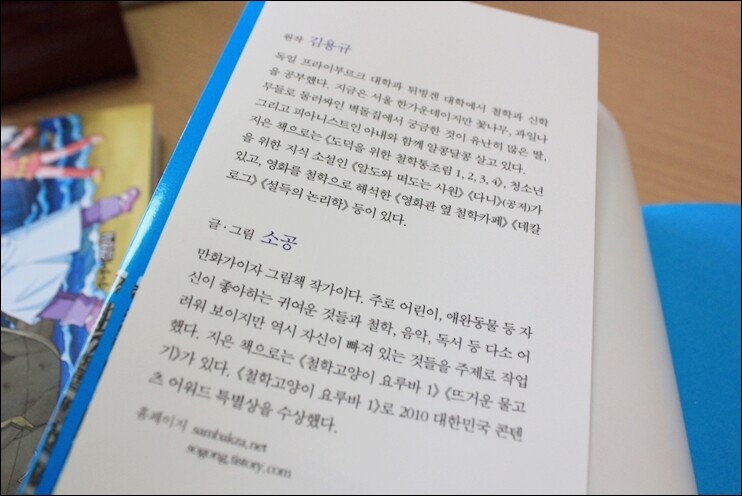 원작 김용규
독일 프라이부르크 대학과 튀빙겐 대학에서 철학과 신학
을 공부했다. 지금은 서울 한가운데이지만 꽃나무, 과일나
무들로 둘러싸인 벽돌집에서 궁금한 것이 유난히 많은 딸,
그리고 피아니스트인 아내와 함께 알콩달콩 살고 있다.
지은 책으로는 《도덕을 위한 철학통조림 1, 2, 3, 4》, 청소년
을 위한 지식 소설인 《알도와 떠도는 사원》 《다니》(공저)가
있고, 영화를 철학으로 해석한 《영화관 옆 철학카페》 《데칼
로그》 《설득의 논리학》 등이 있다.
글·그림 소공
만화가이자 그림책 작가이다. 주로 어린이, 애완동물 등 자
신이 좋아하는 귀여운 것들과 철학, 음악, 독서 등 다소 어
려워 보이지만 역시 자신이 빠져 있는 것들을 주제로 작업
했다. 지은 책으로는 《철학고양이 요루바 1》 《뜨거운 물고
기》가 있다. 《철학고양이 요루바 1》로 2010 대한민국 콘텐
츠 어워드 특별상을 수상했다.
홈페이지 sambakza.net
sogong.tistory.com